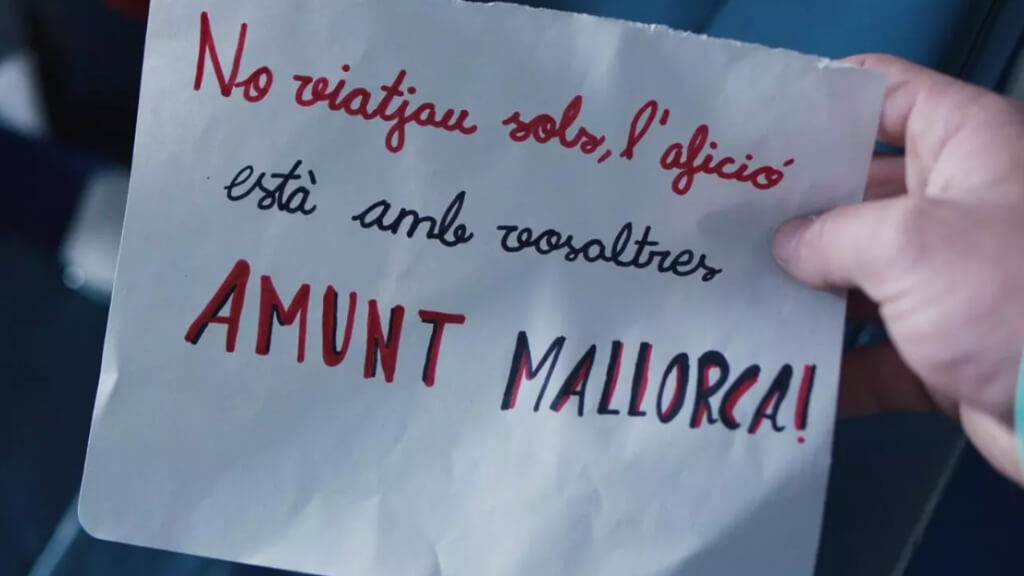 No viatjau sols, l'afició
està amb vosaltres
AMUNT MALLORCA!